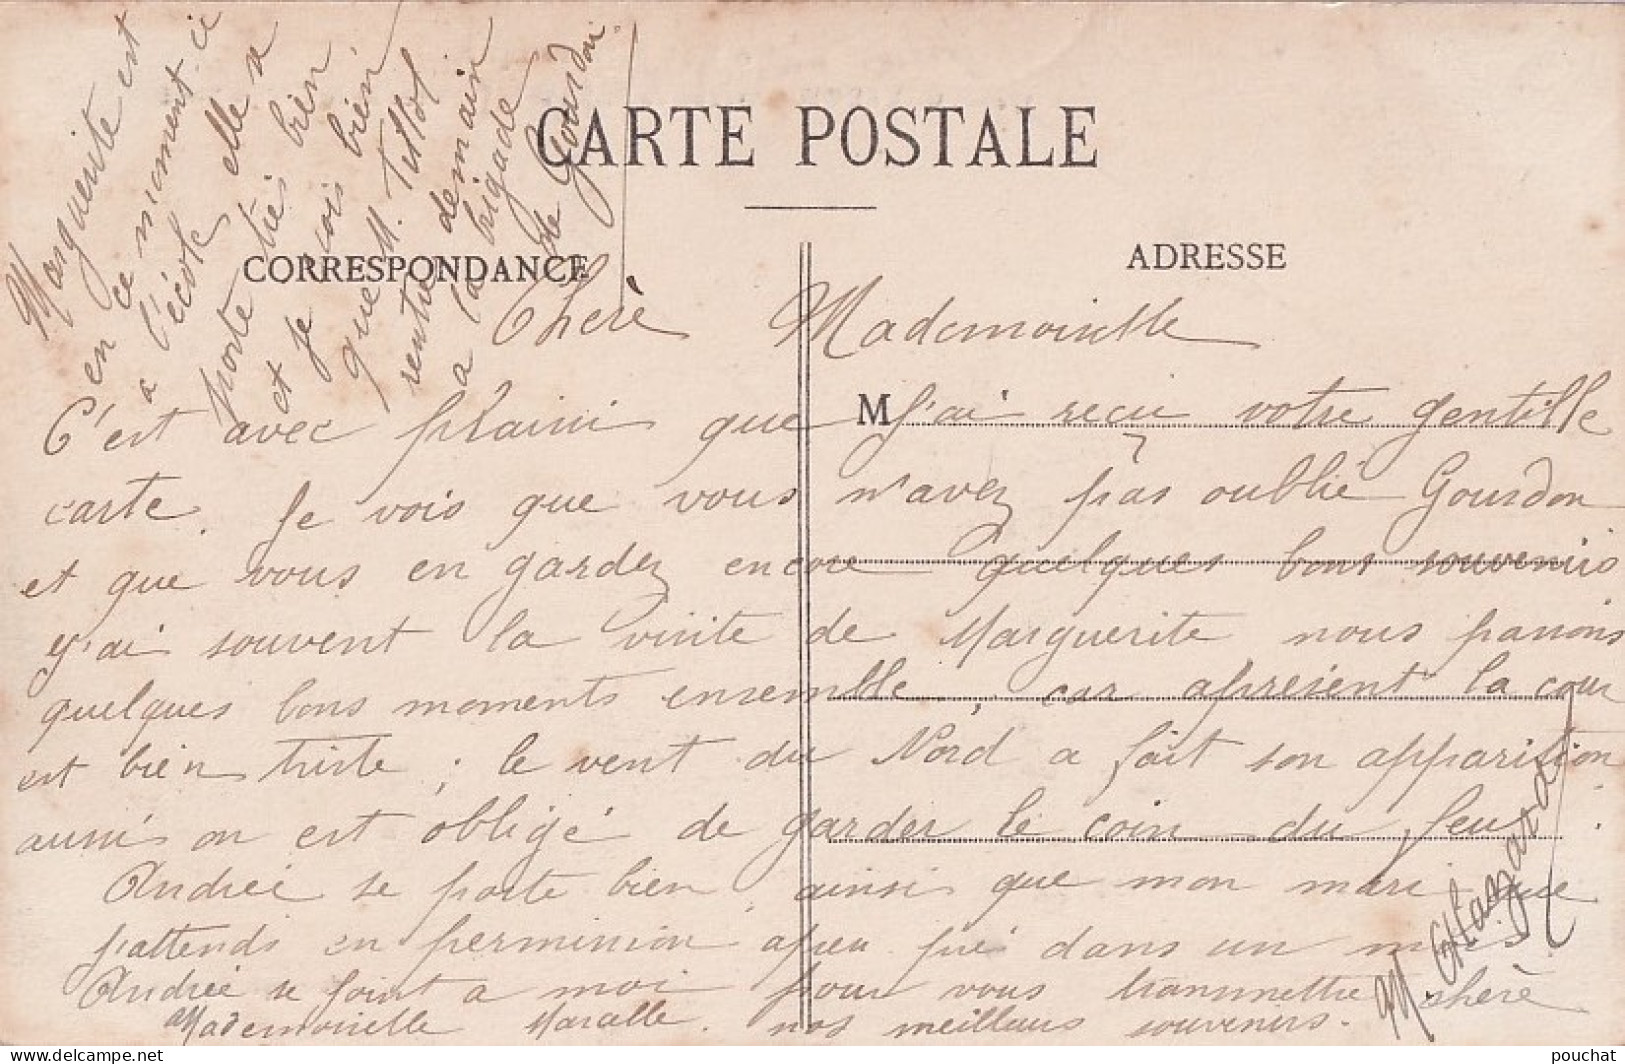 CARTE POSTALE
CORRESPONDANCE
ADRESSE
Cherè Mademoiselle
C'est avec plaisir que M J'ai reçu votre gentille
carte. Je vois que vous n'avez pas oublié Gourdon
et que vous en gardez encore quelques bons souvenirs
y'ai souvent la visite de Marguerite nous passons
quelques bons moments ensemble, car apresient la cour
est bien triste ; le vent du Nord a fait son apparition.
aussi on est obligé de garder le coin du feu.
Andrée se porte bien ainsi que mon mari que
j'attends en permission apeu pré dans un mois
Andrée se joint a moi pour vous transmettre chère
Mademoiselle nos meilleurs souvenirs.
Marguerite est
en ce moment-ci
a l'école elle se
porte très bien
et je crois bien
que M. Tillol
rentre demain
a la brigade
de Gourdon.